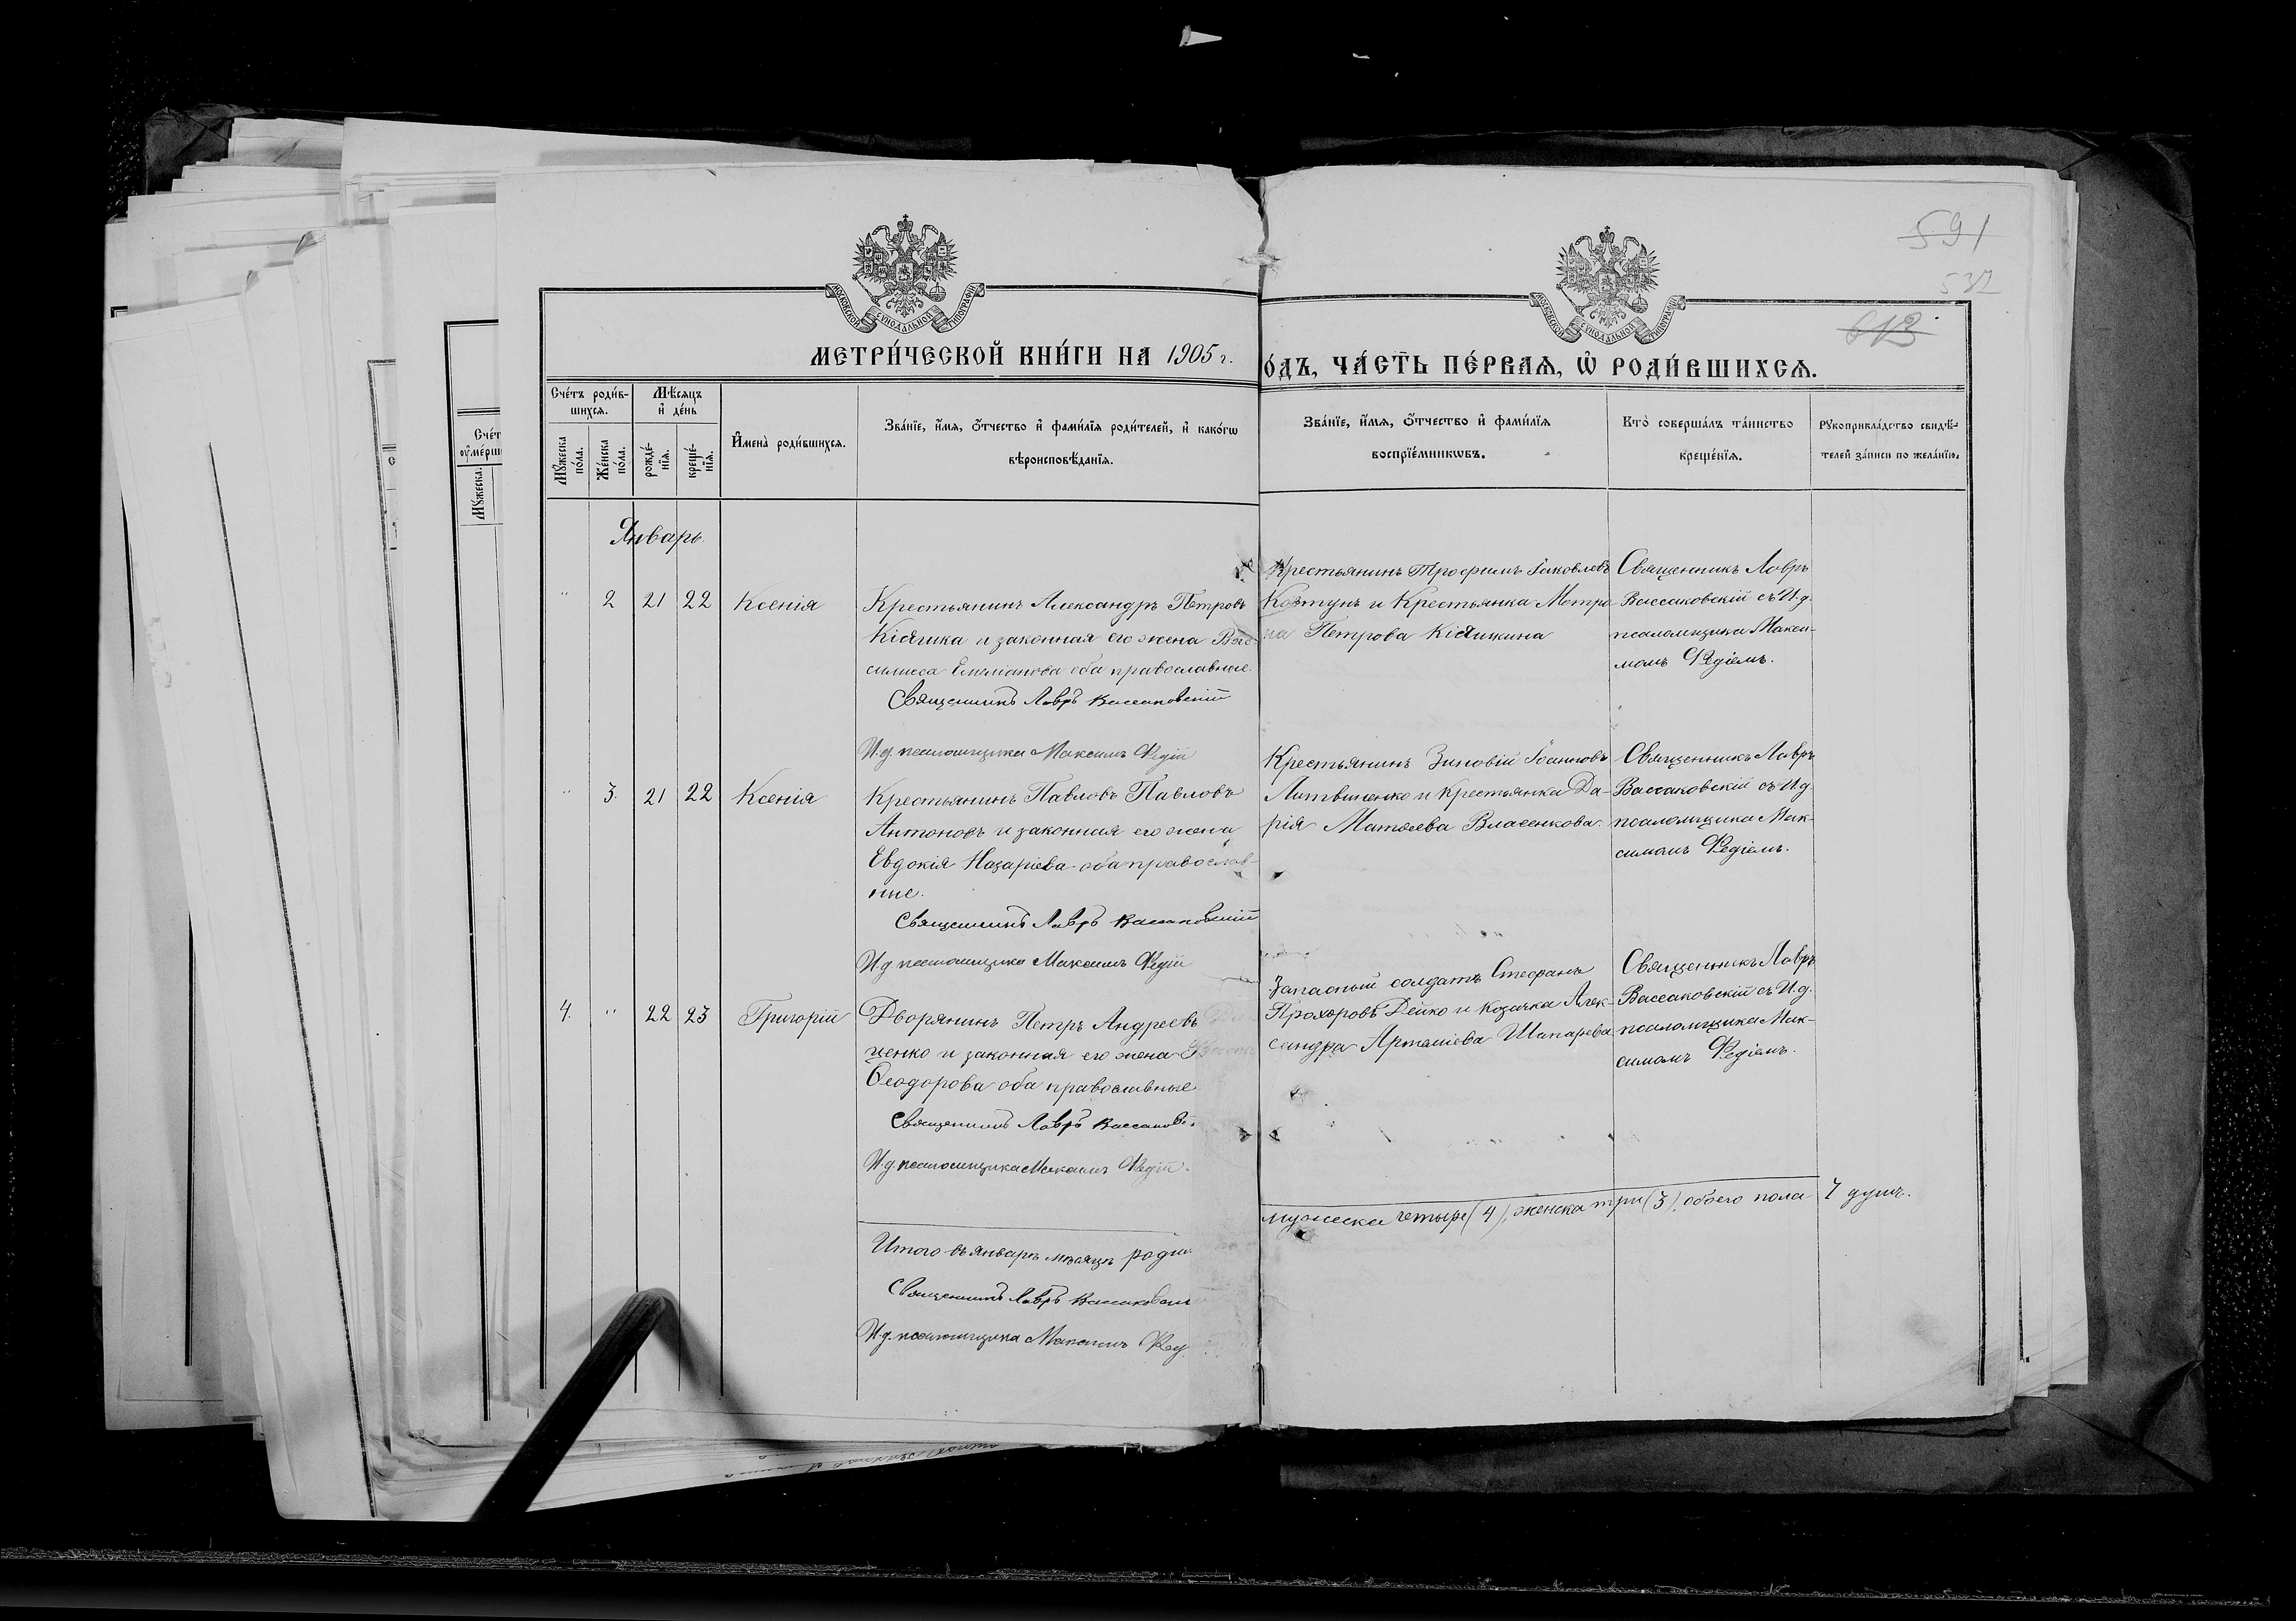 591
537
613
МОСКОВСКОЙ СѴНОДАЛЬНОЙ ТИПОГРАФІИ
МОСКОВСКОЙ СѴНОДАЛЬНОЙ ТИПОГРАФІИ
МЕТРИ́ЧЕСКОЙ КНИ́ГИ НА 1905 г.
О́ДЪ, ЧА́СТЬ ПЕ́РВАЯ, Ѡ РОДИ́ВШИХСЯ.
Сче́тъ роди́в-
шихся.
Мѣ́сяцъ
и де́нь
Му́жеска
по́ла.
Же́нска
по́ла.
рожде́-
нїя.
креще́-
нїя.
Имена̀ роди́вшихся.
Зва́нїе, и́мя, о́тчество и фами́лїя роди́телей, и како́гѡ
вѣроисповѣ́данїя.
Зва́нїе, и́мя, о́тчество и фами́лїя
воспрїе́мникѡвъ.
Кто̀ соверша́лъ та́инство
креще́нїя.
Рꙋкоприкла́дство свидѣ́-
телей за́писи по жела́нїю.
Январь.
" 2 21 22 Ксенія
Крестьянинъ Александръ Петровъ
и законная его жена Вас-
силисса Емеліанова оба православные.
Священникъ Лавръ Вассаковскій
И.д. псаломщика Максимъ Федій
Крестьянинъ Трофимъ Іаковлевъ
Ковтунъ и Крестьянка Матро-
на Петрова
Священникъ Лавръ
Вассаковскій съ И.д.
псаломщика Макси-
момъ Федіемъ.
" 3. 21 22 Ксенія
Крестьянинъ Павловъ Павловъ
Антоновъ и законная его жена
Евдокія Назаріева оба православ-
ные.
Священникъ Лавръ Вассаковскій
И.д. псаломщика Максимъ Федій
Крестьянинъ Зиновій Іоанновъ
Литвиненко и Крестьянка Да-
рія Матѳеева Власенкова.
Священникъ Лавръ
Вассаковскій съ И.д.
псаломщика Мак-
симомъ Федіемъ.
4. " 22 23 Григорій
Дворянинъ Петръ Андреевъ
ценко и законная его жена
Ѳеодорова оба православные
Священникъ Лавръ
И.д. псаломщика Максимъ Федій.
Запасный солдатъ Стефанъ
Прохоровъ Дейко и козачка Алек-
сандра Артеміева Шапарева
Священникъ Лавръ
Вассаковскій съ И.д.
псаломщика Мак-
симомъ Федіемъ.
Итого въ январѣ мѣсяцѣ роди
мужеска четыре (4), женска три (3), обоего пола 7 душъ.
Священникъ Лавръ
И.д. псаломщика Максимъ Фед
Сче́т
Му́жеска